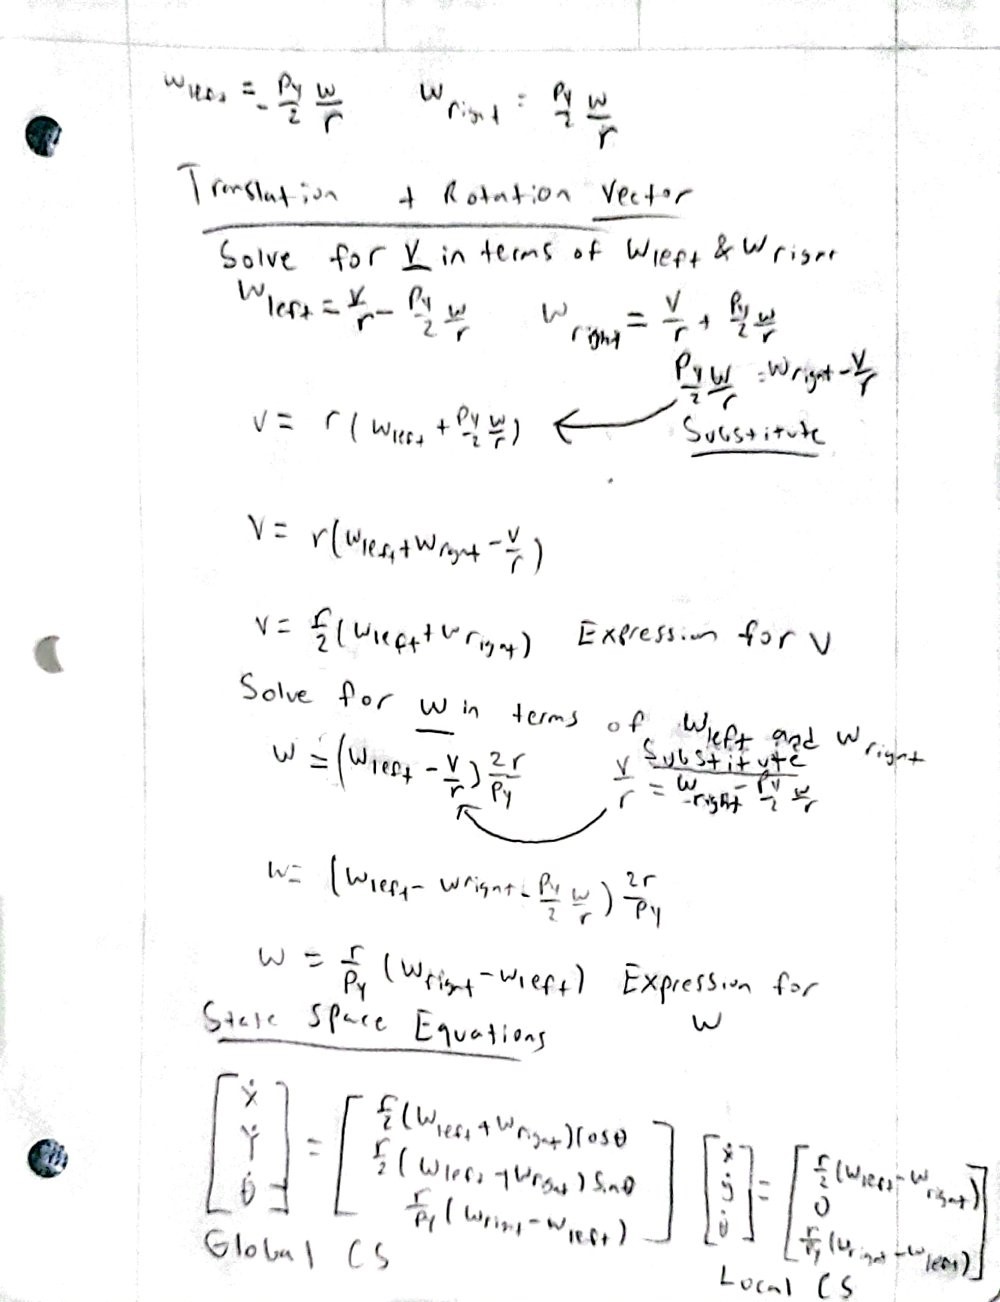 W left = - Py/2 w/r    W right = Py/2 w/r
Translation + Rotation Vector
Solve for V in terms of W left & W right
W left = V/r - Py/2 w/r    W right = V/r + Py/2 w/r
Py/2 w/r = W right - V/r
V = r(W left + Py/2 w/r) ←
Substitute
V = r(W left + W right - V/r)
V = r/2 (W left + W right) Expression for V
Solve for w in terms of W left and W right
Substitute
w = (W left - V/r) 2r/Py    V/r = W right - Py/2 w/r
w = (W left - W right - Py/2 w/r) 2r/Py
w = r/Py (W right - W left) Expression for w
State Space Equations
[Ẋ Ẏ θ̇] = [r/2 (W left + W right) cosθ
r/2 (W left + W right) Sinθ
r/Py (W right - W left)]
[ẋ ẏ θ̇] = [r/2 (W left - W right)
0
r/Py (W right - W left)]
Global CS
Local CS